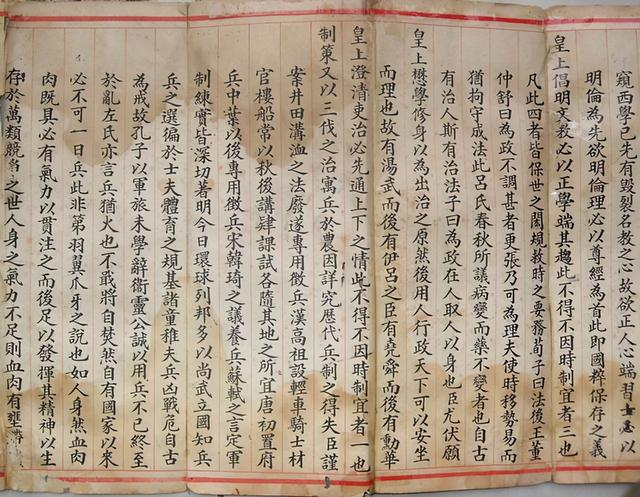 窺西學已先有毀裂名教之心故欲正人心端習士以
明倫為先欲明倫理必以尊經為首此即國粹保存之義
皇上倡明文教必以正學端其趨此不得不因時制宜者三也
凡此四者皆保世之閎規救時之要務荀子曰法後王董
仲舒曰為政不調甚者更張乃可為理夫使時移勢易而
猶拘守成法此呂氏春秋所議病變而藥不變者也自古
有治人斯有治法子曰為政在人取人以身也臣尤伏願
皇上懋學修身以為出治之原然後用人行政天下可以安坐
而理也故有湯武而後有伊呂之臣有堯舜而後有勳華
皇上澄清吏治必先通上下之情此不得不因時制宜者一也
制策又以三代之治寓兵於農因詳究歷代兵制之得失臣謹
案井田溝洫之法廢遂專用徵兵漢高祖設輕車騎士材
官樓船常以秋後講肄課試各隨其地之所宜唐初置府
兵中葉以後專用徵兵宋韓琦之議養兵蘇軾之言定軍
制練實皆深切著明今日環球列邦多以尚武立國知兵
兵之選徧於士夫體育之規基諸童稚夫兵凶戰危自古
為戒故孔子以軍旅未學辭衛靈公誠以用兵不已終至
於亂左氏亦言兵猶火也不戢將自焚然自有國家以來
必不可一日兵此非第羽翼爪牙之說也如人身然血肉
肉既具必有氣力以貫注之而後足以發揮其精神以生
存於萬類競爭之世人身之氣力不足則血肉有壅